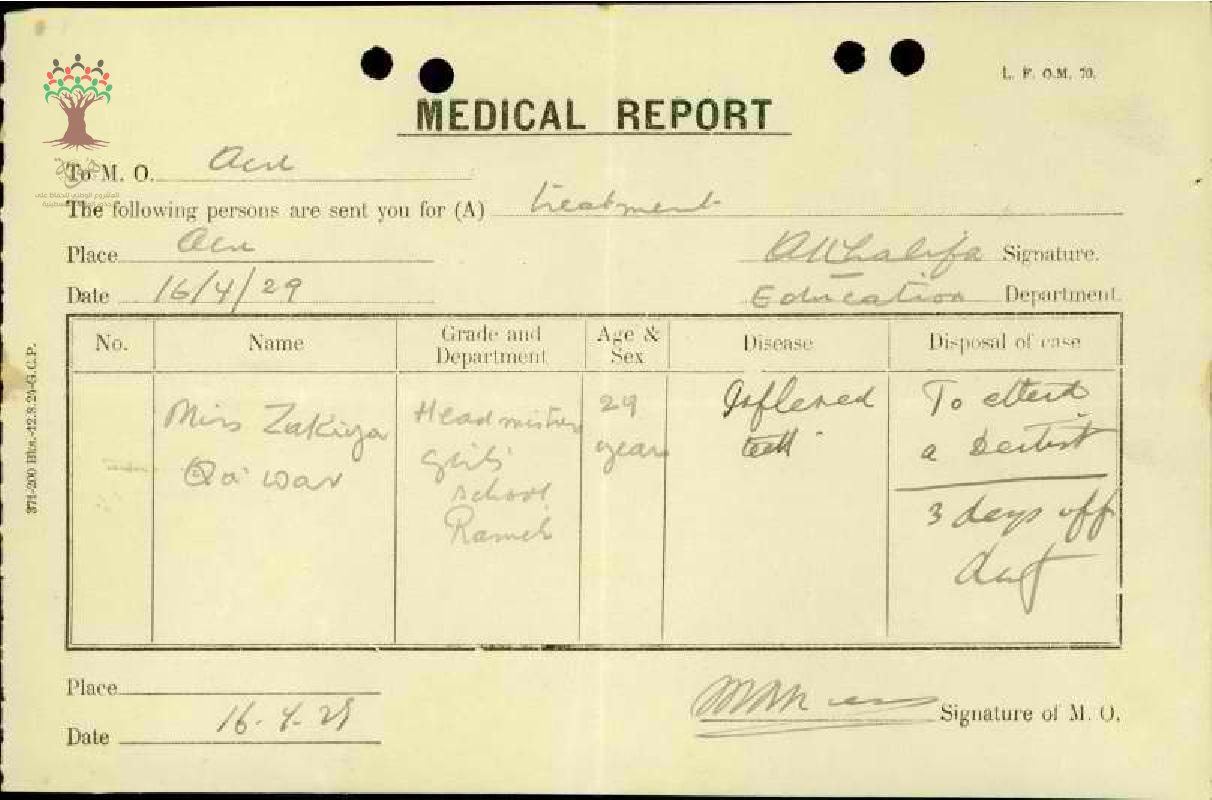 L. F. O.M. 70.
MEDICAL REPORT
To M. O. Acre
The following persons are sent you for (A) treatment
Place Acre
AKhalifa Signature.
Date 16/4/29
Education Department.
No. Name Grade and Department Age & Sex Disease Disposal of case
Miss Zakiya Headmistress 29 Inflamed To attend
Qa'war girls' years teeth a Dentist
School 3 days off
Rameh duty
371-200 Bks.-12.8.24-G.C.P.
Place
Date 16.4.29
Signature of M. O.